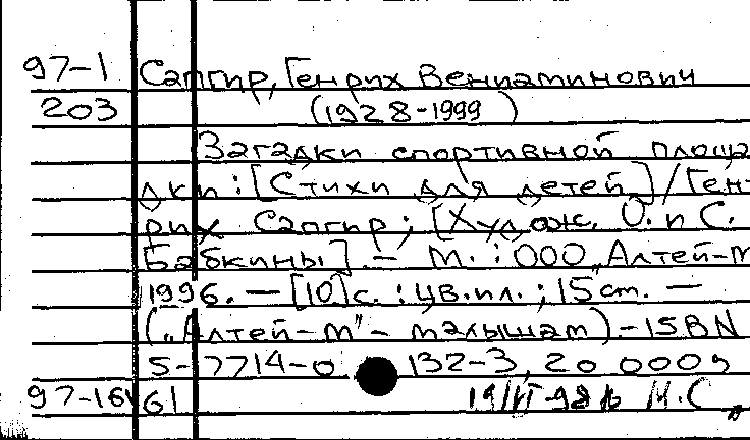 97-1 Сапгир, Генрих Вениаминович
203 (1928-1999)
Загадки спортивной площа
дки: [Стихи для детей] / Ген-
рих Сапгир; [Худож. О. и С.
Бабкины]. - М.: ООО "Алтей-М
1996. - [10]с.: цв.ил.; 15 см. -
("Алтей-М" - малышам). - ISBN
5-7714-0 132-3, 20 000э
97-16 61 М.С